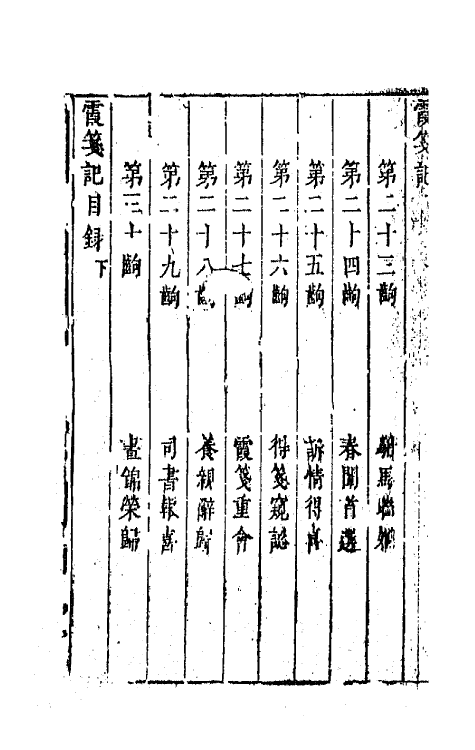 霞箋記
第二十三齣 駙馬聯姻
第二十四齣 春闈首選
第二十五齣 訴情得
第二十六齣 得箋窺認
第二十七齣 霞箋重會
第二十八齣 養親辭歸
第二十九齣 司書報喜
第三十齣 晝錦榮歸
霞箋記目録下